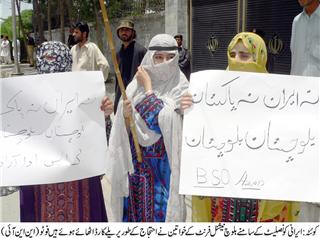 نہ ایران نہ پاک
نہ ایران نہ پاکستان
بلوچستان بلوچستان
BSO Azad
کوئٹہ: ایرانی قونصلیٹ کے سامنے بلوچ نیشنل فرنٹ کے خواتین نے احتجاج کے طور پر پلے کارڈ اٹھائے ہوئے ہیں فوٹو (این این آئی)